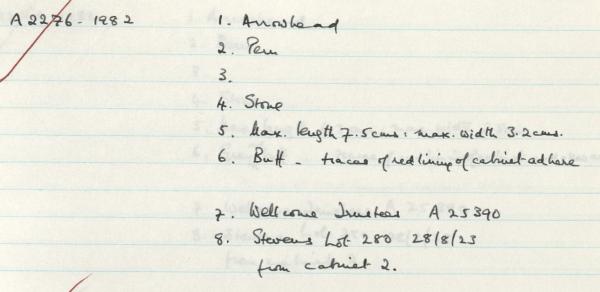 A2276-1982 1. Arrowhead
2. Peru
3.
4. Stone
5. Max. length 7.5cms: max. width 3.2cms.
6. Buff - traces of red lining of cabinet adhere
7. Wellcome Trustees A 25390
8. Stevens Lot 280 28/8/23
from cabinet 2.